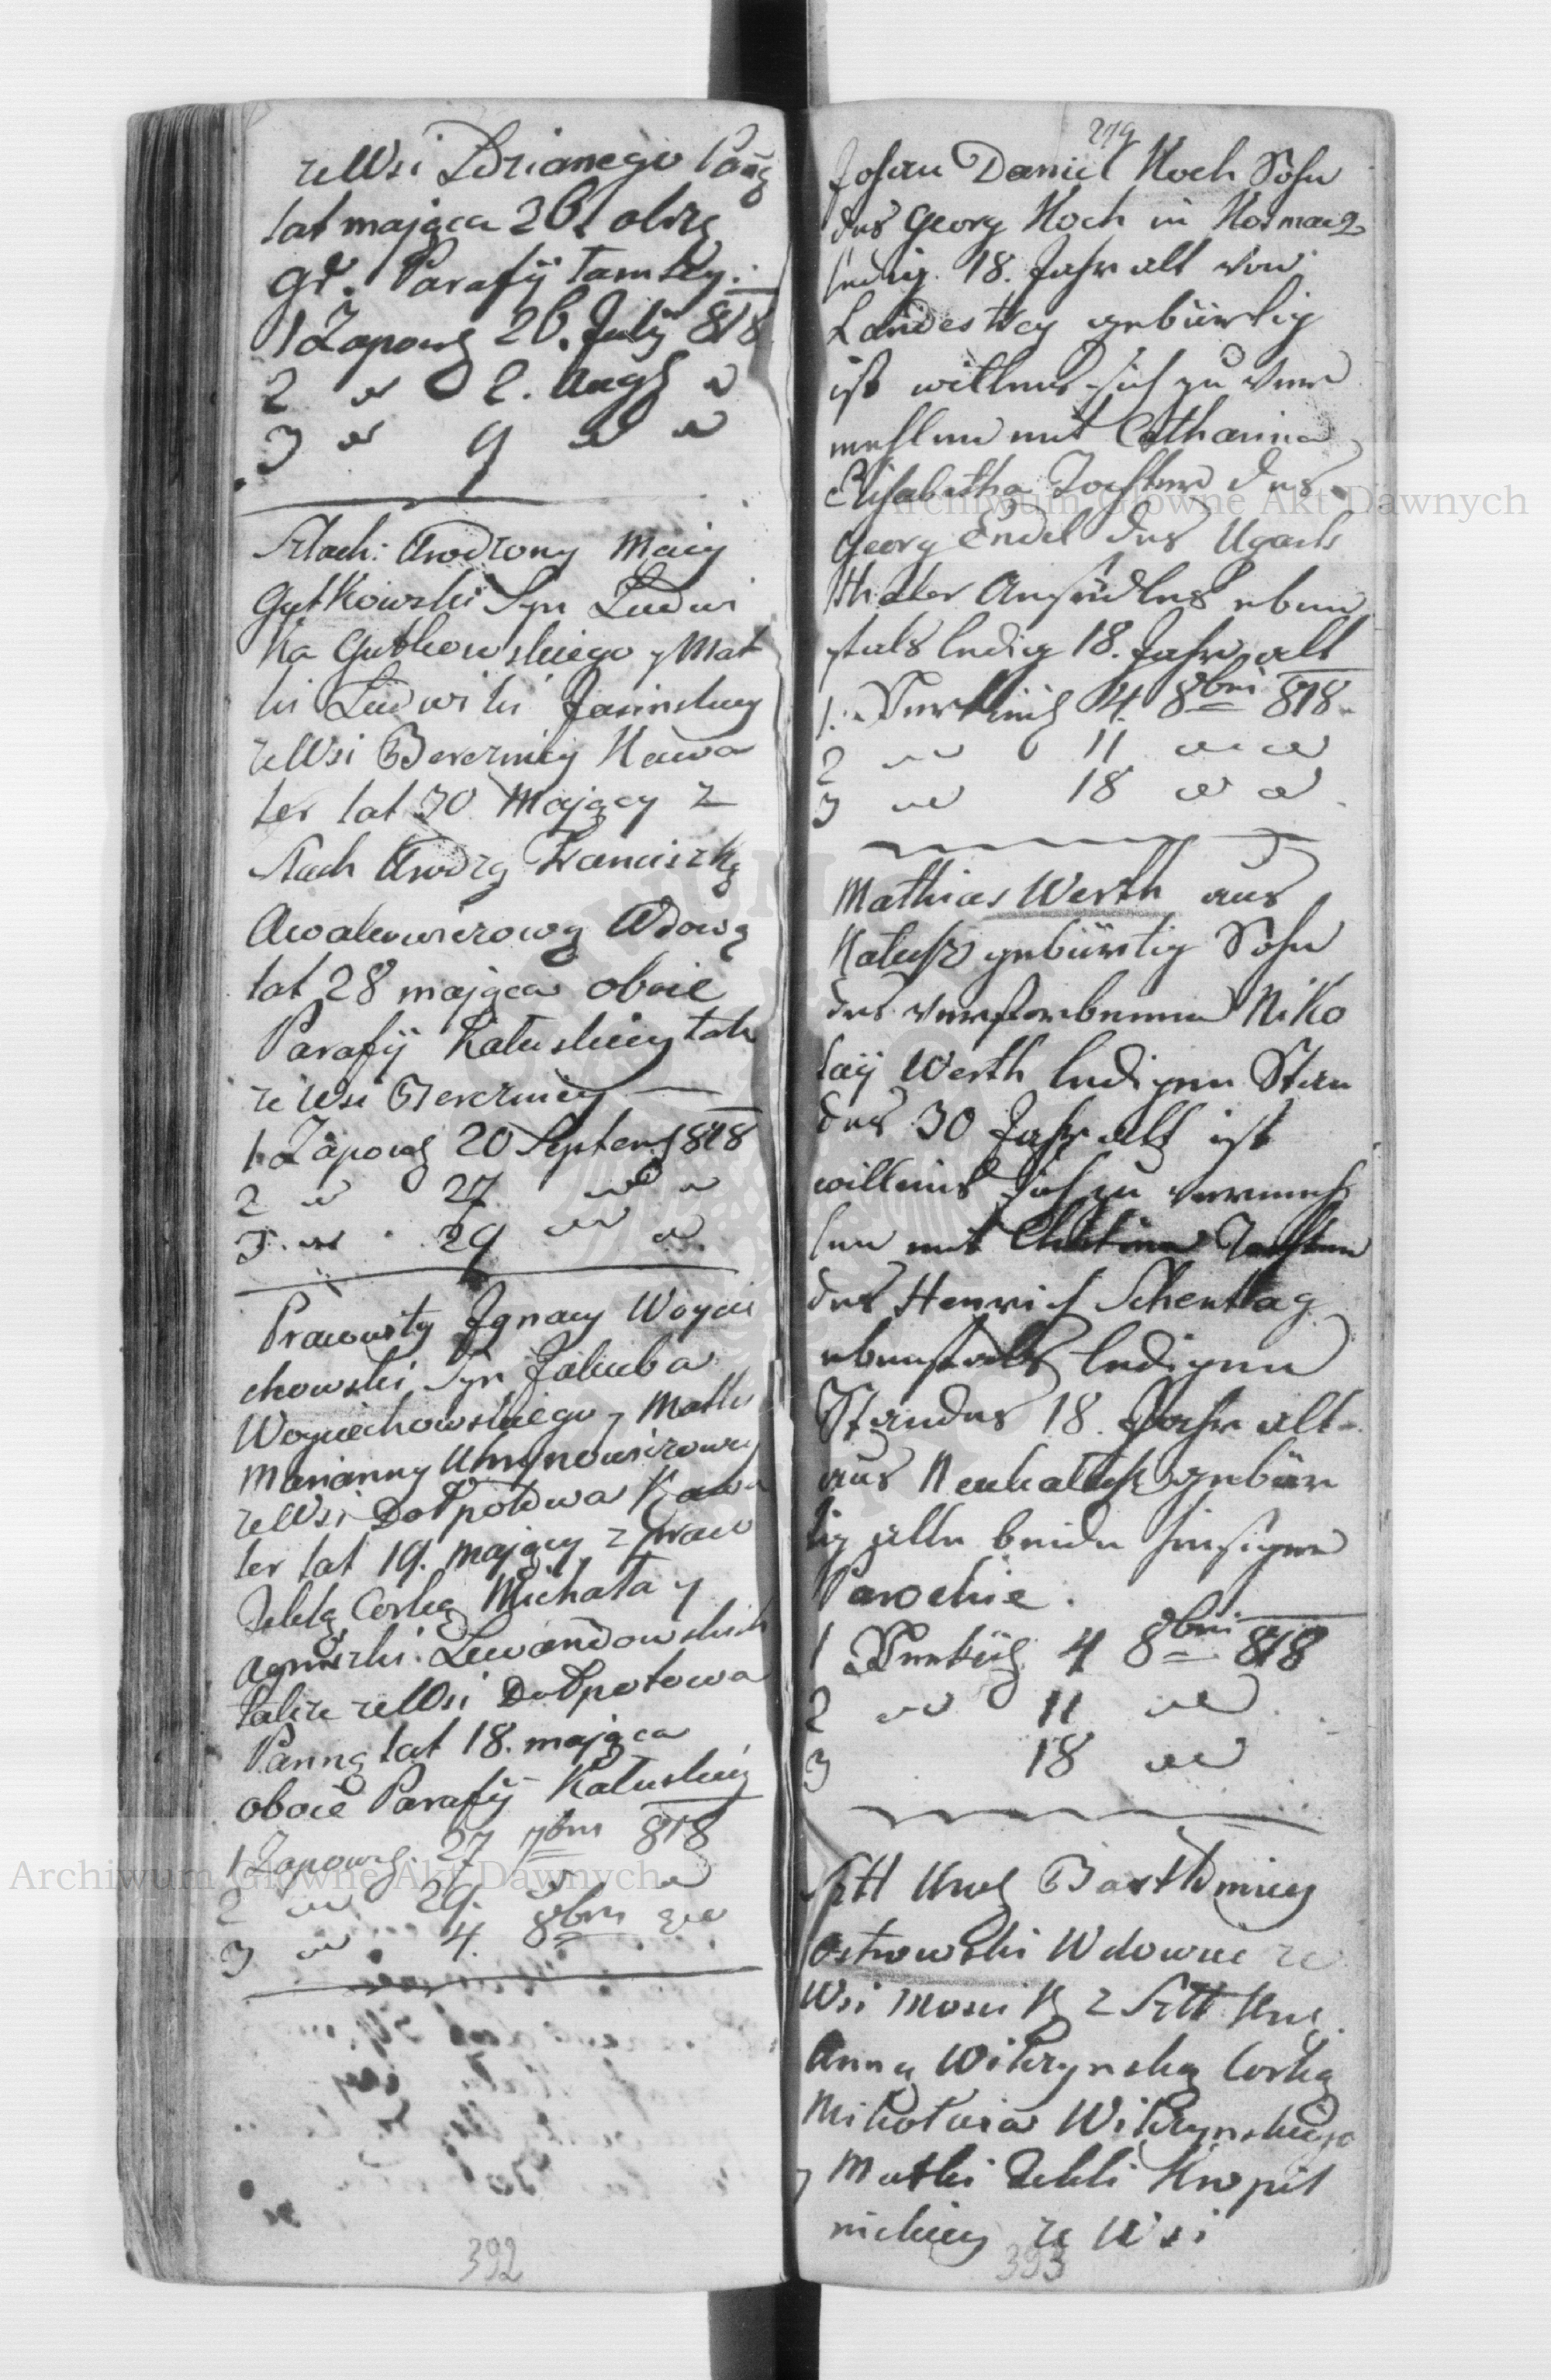 ze Wsi Zdrianego Panng
lat mająca 26. obrz
gr. Parafÿ tamtey.
1 Zapowg 26. July 818
2 " 2. Aug "
3 " 9 " "
Szlach: Urodzony Maciy
Gutkowski Syn Ludwi
ka Gutkowskiego y Mat
ki Ludwiki Jasinskiey
ze Wsi Bereznicy Kawa
ler lat 30 Mający z
Szlach Urodzą Franciszką
Awakowiczową Wdową
lat 28 mająca oboie
Parafÿ Kałuskiey tak
ze Wsi Bereznicy
1 Zapowg 20 Septemb 818
2 " 27 " "
3 " 29 " "
Pracowity Ignacy Woycie
chowski Syn Jakuba
Woyciechowskiego y Matki
Marianny
ze Wsi Dołpotowa Kawa
ler lat 19. mający z prac
Teklą Corką Michała y
Agnieszki Lewandowskich
także ze Wsi Dołpotowa
Panną lat 18. mająca
oboie Parafÿ Kałuskiey
1 Zapowg. 27 7bris 818
2 " 29. " "
3 " 4. 8bris "
392
279
Johan Daniel Koch Sohn
des Georg Koch in Kosmacz
ledig 18. Jahr alt von
Landestrey gebürtig
ist willens sich zu ver
mehlen mit Catharina
Elisabetha Tochter des
Georg Endel des Ugarts
thaler Ansiedlers eben
fals ledig 18. Jahr alt
1. Verkünd 4. 8bris 818
2 " 11 " "
3 " 18 " "
Mathias Werth aus
Kałusz gebürtig Sohn
des verstorbenen Niko
laÿ Werth ledigen Stan
des 30 Jahr alt ist
willens sich zu vermeh
len mit Christina Tochter
des Henrich Schentlag
ebenfals ledigen
Standes 18. Jahr alt
aus Neukalusz gebür
tig alle beide hiesigen
Parochie.
1 Verkünd 4 8bris 818
2 " 11 "
3 18 "
Szll Urodz Bartłomiey
Ostrowski Wdowiec ze
Wsi z Szll Urodz
Anną Wilczynską Corką
Mikołaia Wilczynskiego
y Matki Tekli Kropil
nickiey ze Wsi
393
Archiwum Główne Akt Dawnych
Archiwum Główne Akt Dawnych